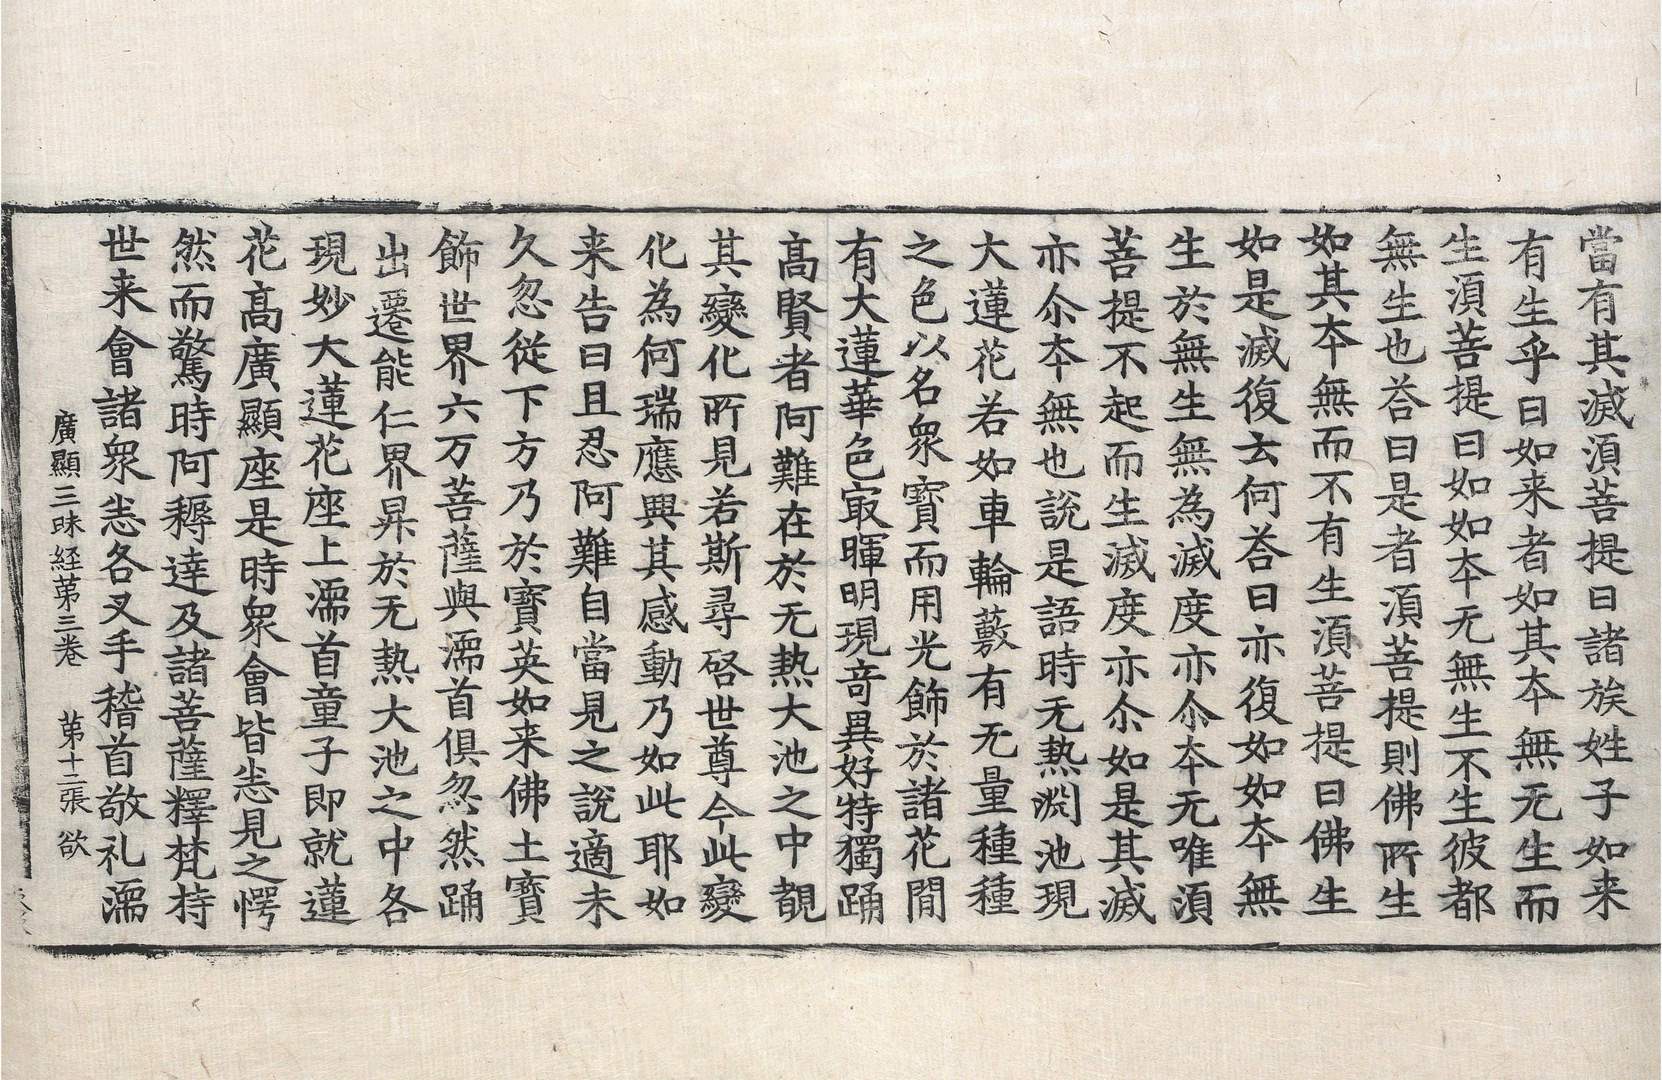 當有其滅湏菩提曰諸族姓子如来
有生乎曰如来者如其夲無无生而
生湏菩提曰如如夲无無生不生彼都
無生也荅曰是者湏菩提則佛所生
如其夲無而不有生湏菩提曰佛生
如是滅復去何荅曰亦復如如夲無
生於無生無為滅度亦尒夲无唯湏
菩提不起而生滅度亦尒如是其滅
亦尒夲無也說是語時无熱渊池現
大蓮花若如車輪藪有无量種種
之色以名衆寳而用光飾於諸花間
有大蓮華色㝡暉明現竒異好特獨踊
髙賢者阿難在於无熱大池之中覩
其變化所見若斯尋啓世尊今此變
化為何瑞應興其感動乃如此耶如
来告曰且忍阿難自當見之說適未
久忽從下方乃於寳英如来佛土寳
飾世界六万菩薩與濡首俱忽然踊
出遷能仁界昇於无熱大池之中各
現妙大蓮花座上濡首童子即就蓮
花髙廣顯座是時衆會皆㤀見之愕
然而驚時阿耨達及諸菩薩釋梵持
世来會諸衆㤀各叉手稽首敬礼濡
廣顯三昧経苐三卷 苐十二張 欲